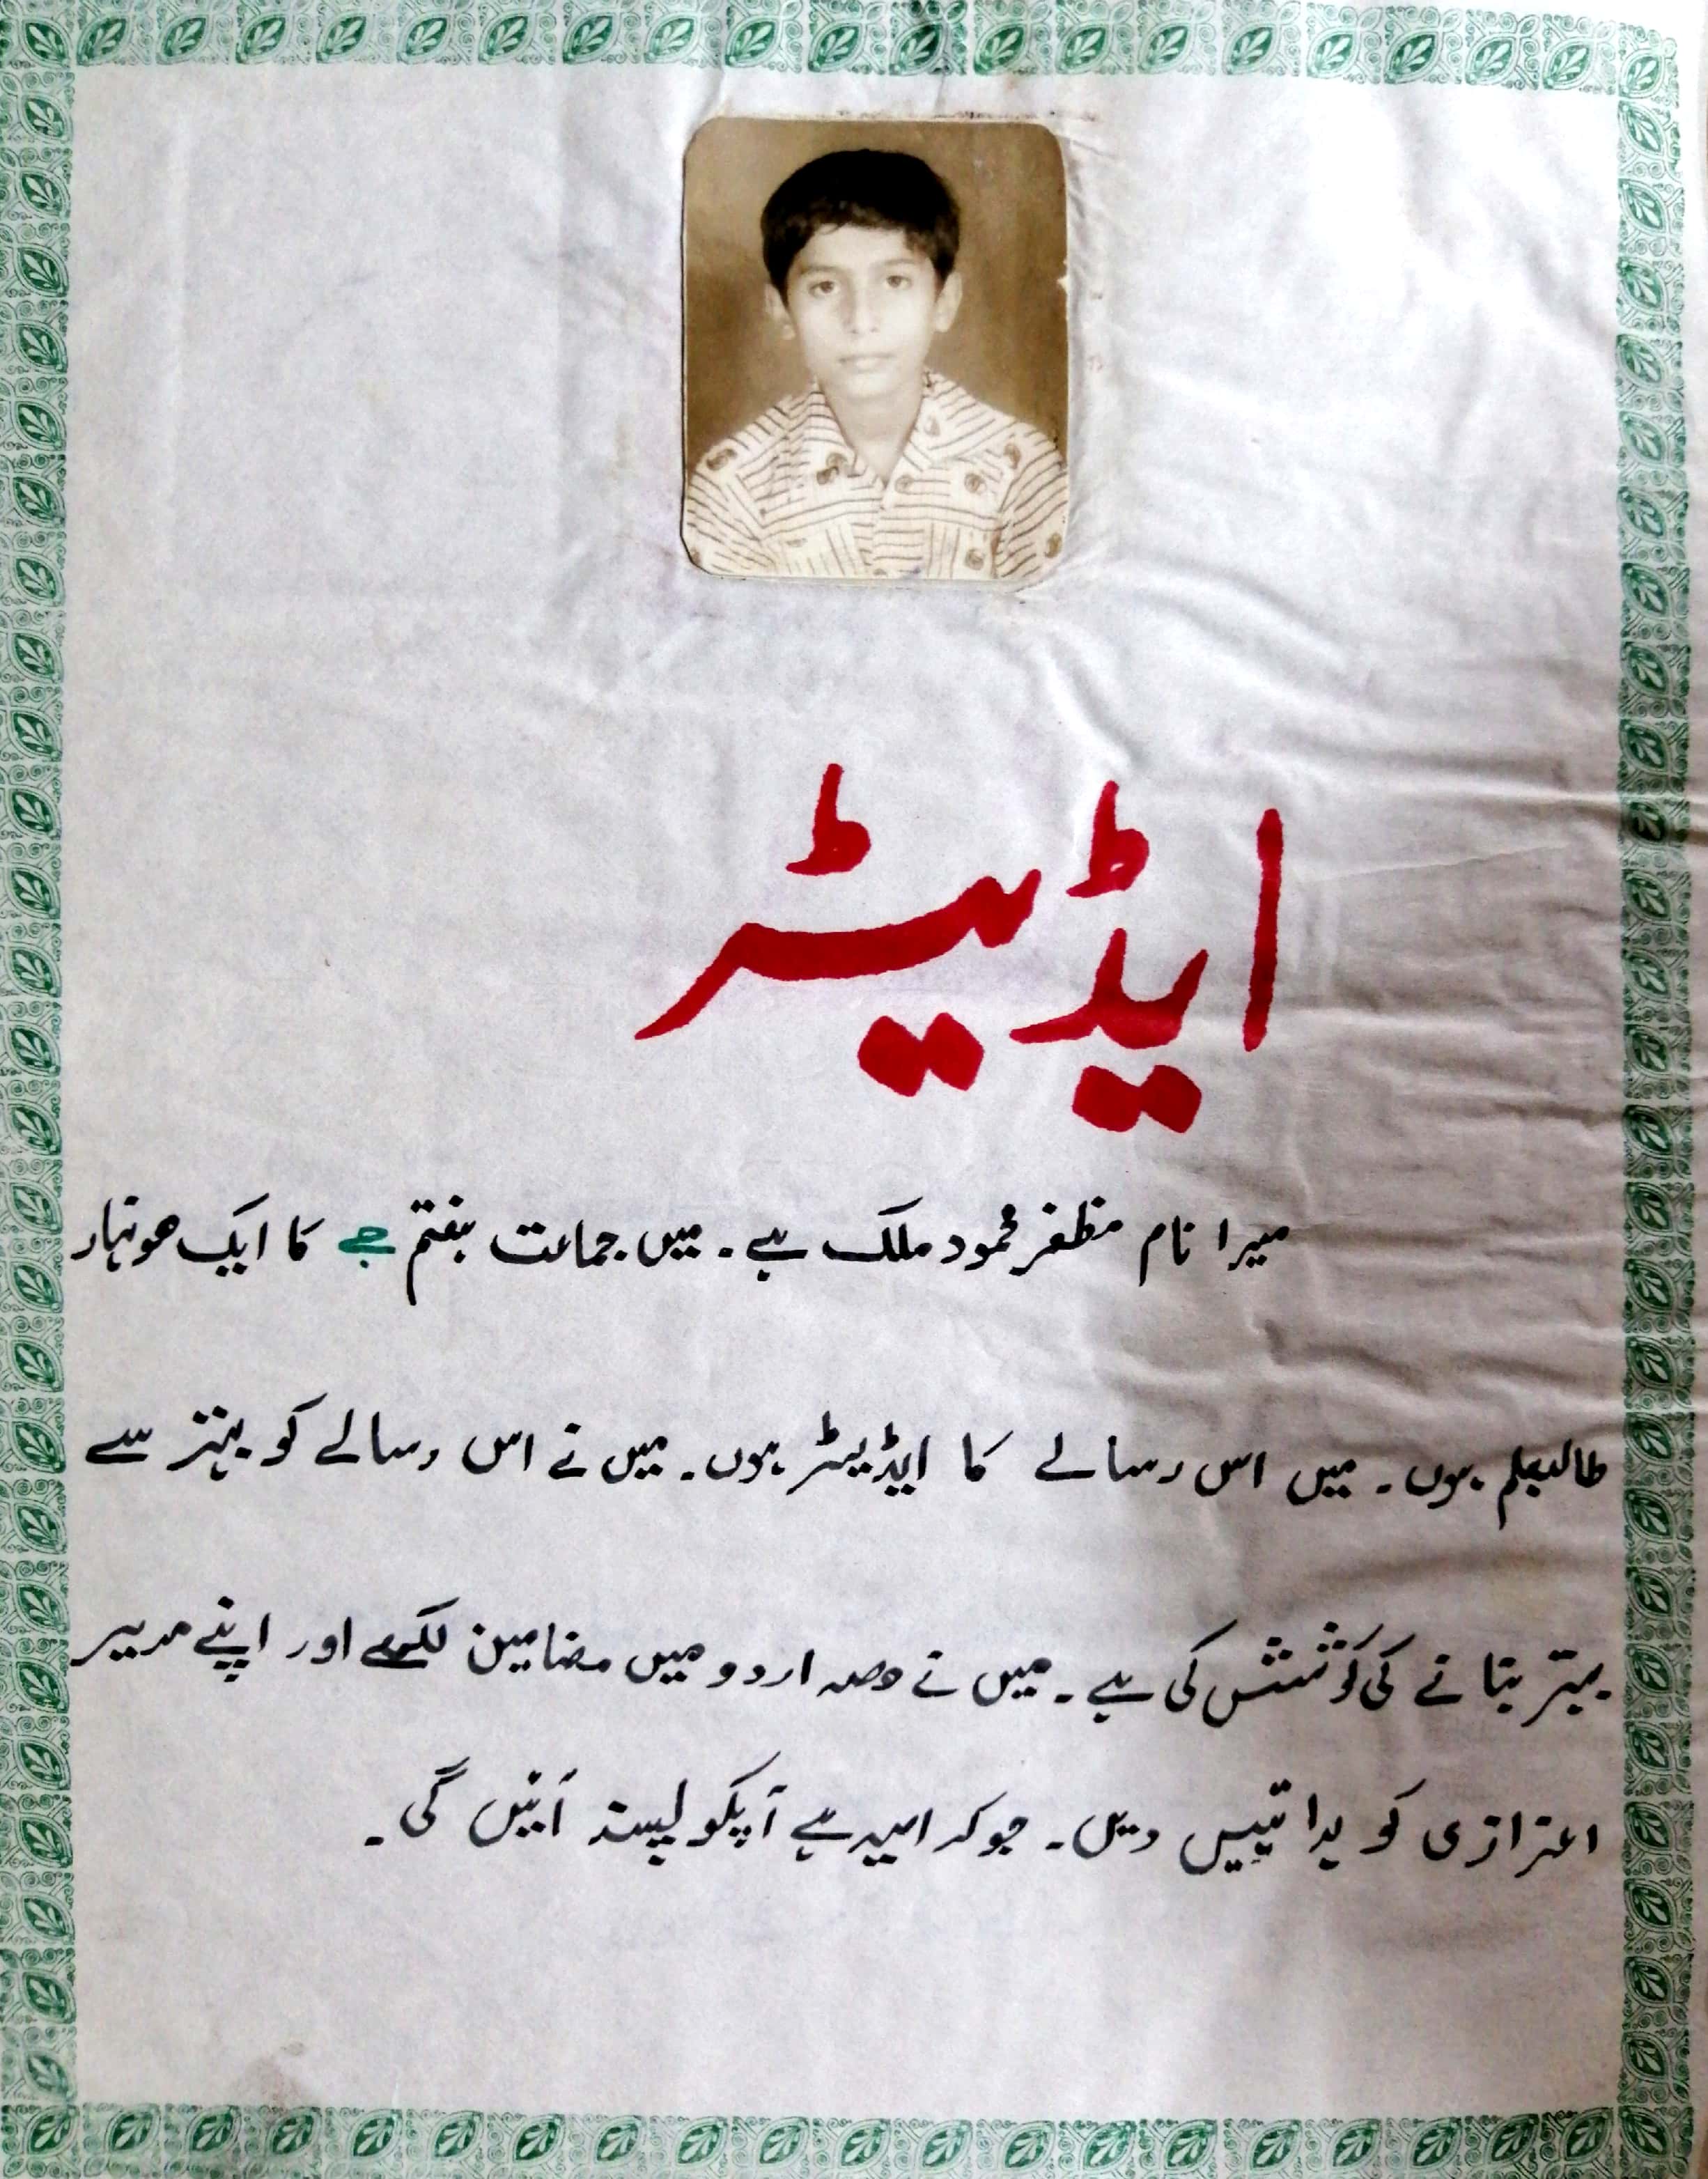 ایڈیٹر
میرا نام مظفر محمود ملک ہے۔ میں جماعت ہفتم جے کا ایک ہونہار
طالبعلم ہوں۔ میں اس رسالے کا ایڈیٹر ہوں۔ میں نے اس رسالے کو بہتر سے
بہتر بنانے کی کوشش کی ہے۔ میں نے حصہ اردو میں مضامین لکھے اور اپنے مدیر
اعزازی کو ہدائتیں دیں۔ جوکہ امید ہے آپکو پسند آئیں گی۔